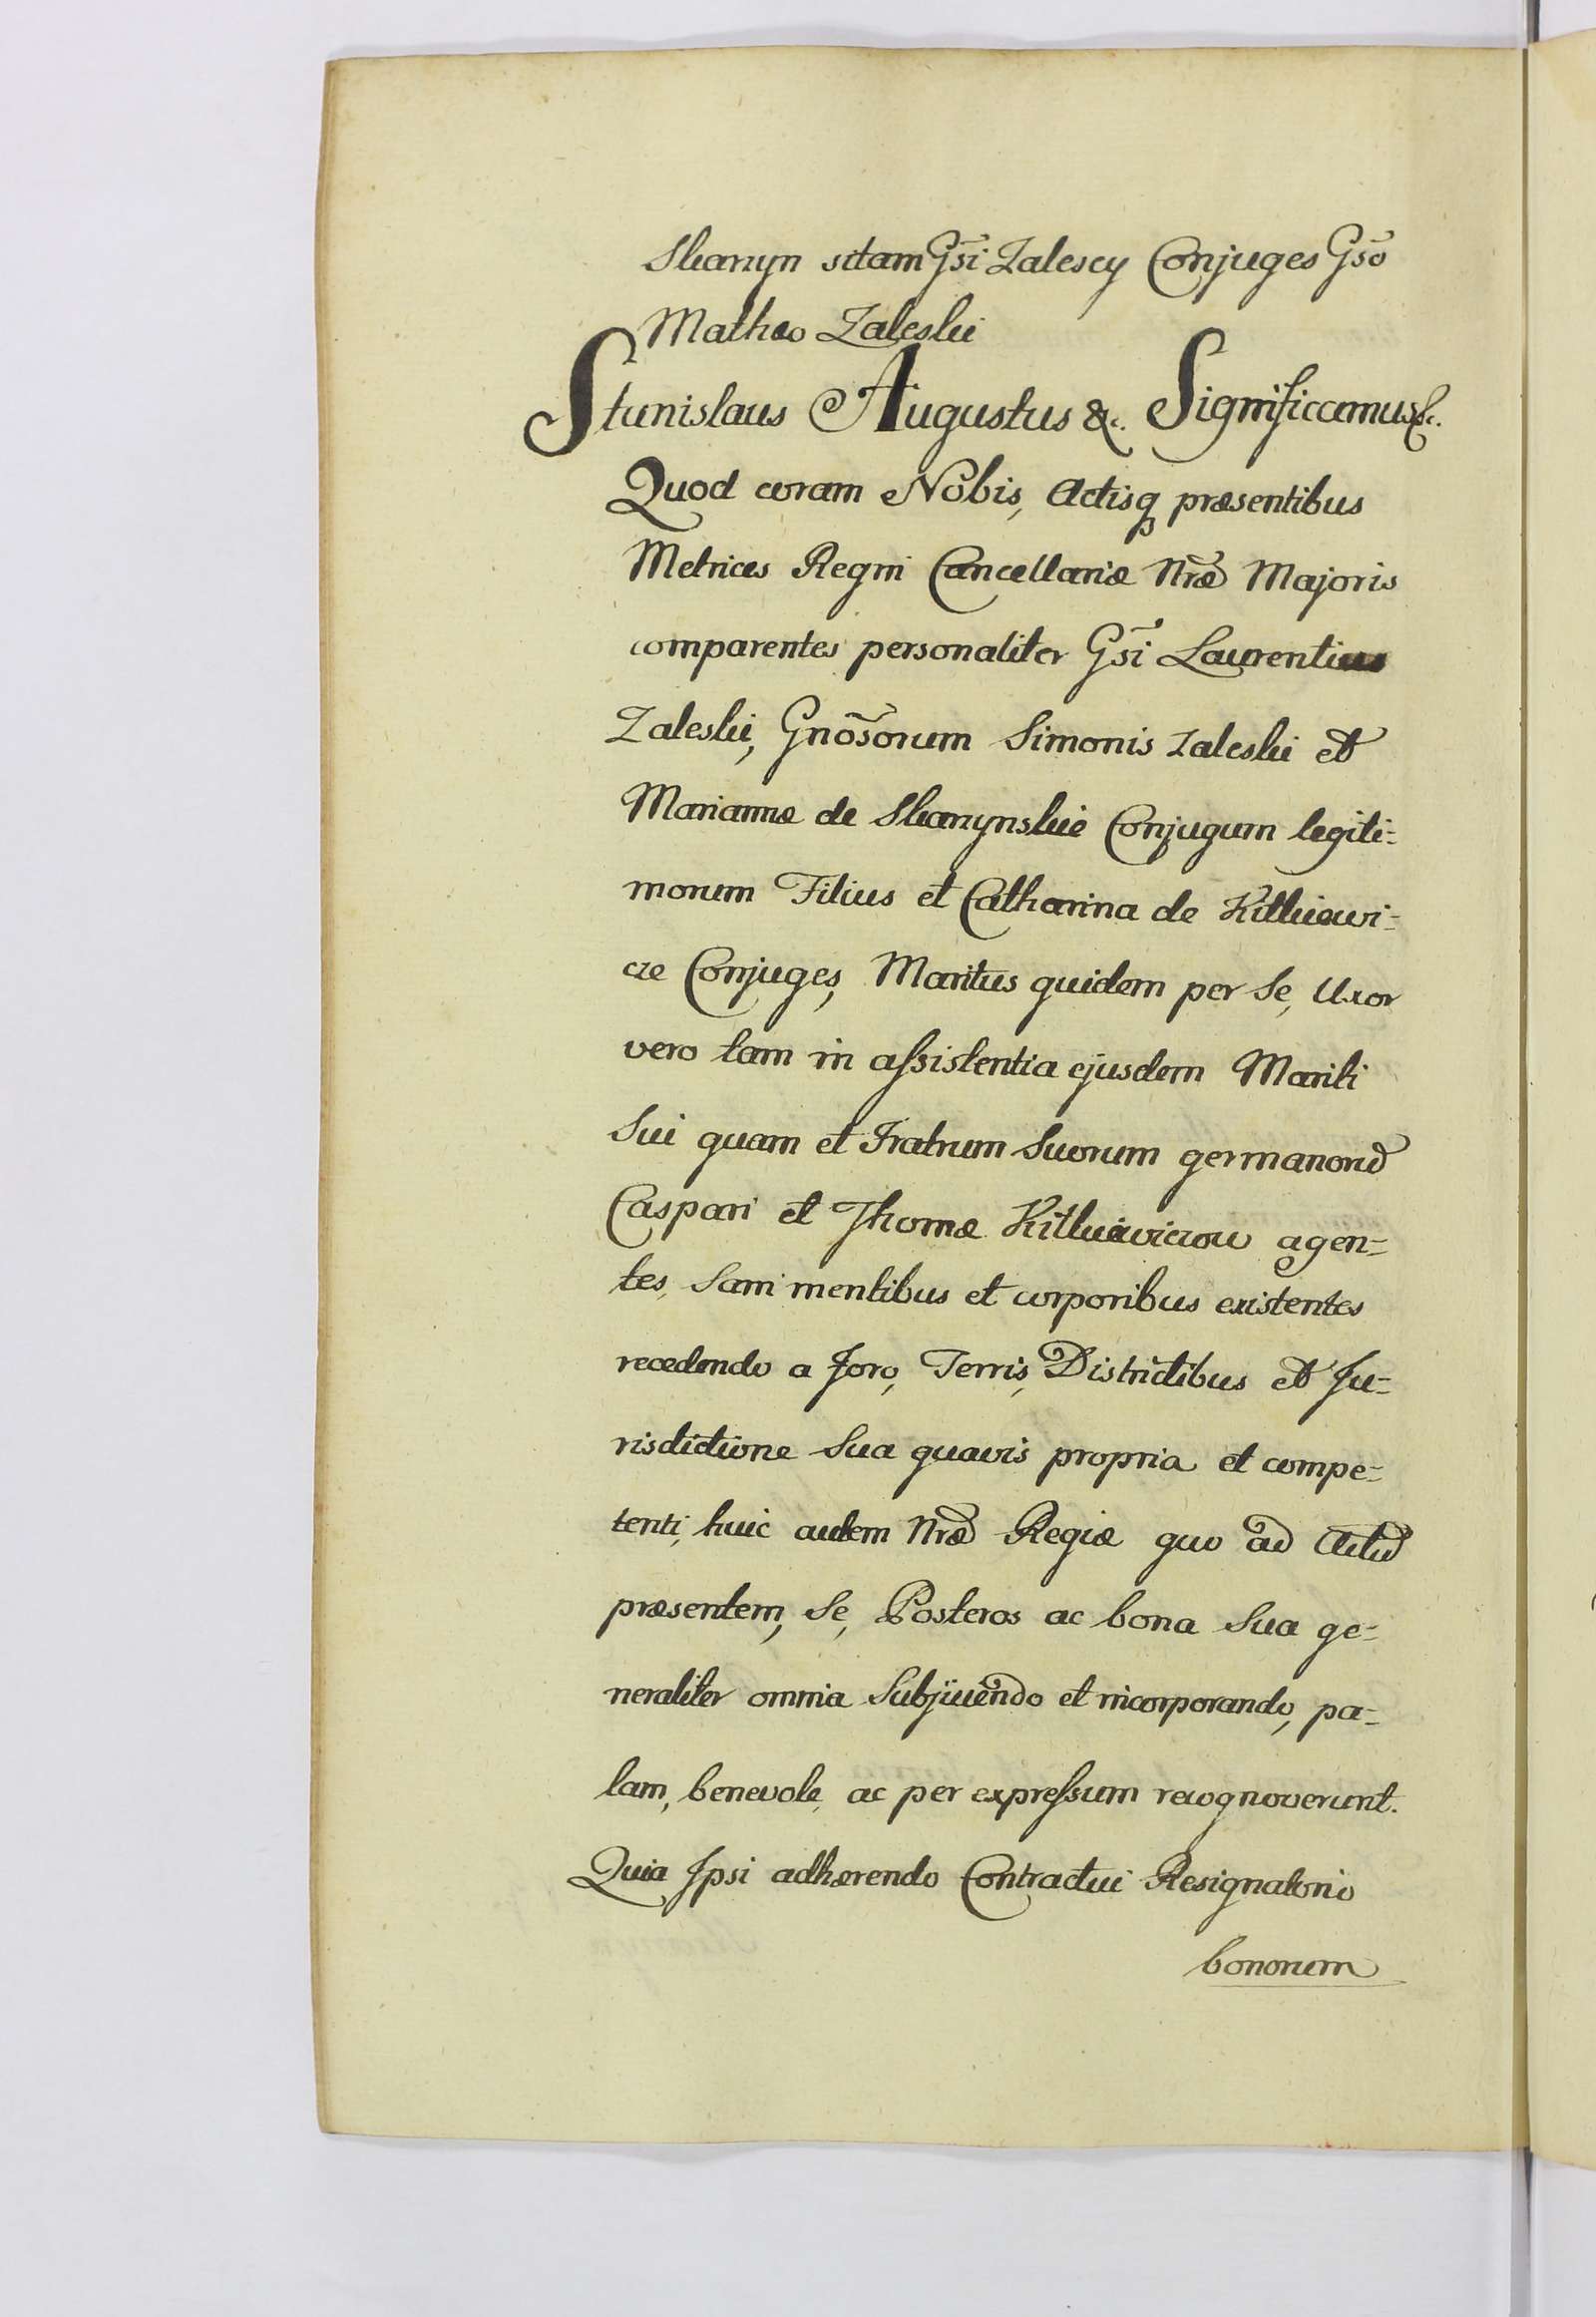 Skarzyn sitam Gsi Zalescy Conjuges Gso
Mathæo Zaleski
Stanislaus Augustus &c. Significamus &c.
Quod coram Nobis, Actisq præsentibus
Metrices Regni Cancellariæ Nræ Majoris
comparentes personaliter Gsi Laurentius
Zaleski, Gnosorum Simonis Zaleski et
Mariannæ de Skarzynskie Conjugum legiti=
morum Filius et Catharina de Kitkiewi=
cze Conjuges, Maritus quidem per se, Uxor
vero tam in assistentia ejusdem Mariti
Sui quam et Fratrum Suorum germanoru
Caspari et Thomæ Kitkiewiczow agen=
tes, Sani mentibus et corporibus existentes
recedendo a Foro, Terris, Districtibus et Ju=
risdictione Sua quavis propria et compe=
tenti, huic autem Nræ Regiæ quo ad Actu
præsentem, Se, Posteros ac bona Sua ge=
neraliter omnia Subjiuendo et incorporando, pa=
lam, benevole, ac per expressum recognoverunt.
Quia Ipsi adhærendo Contractui Resignatorio
bonorum